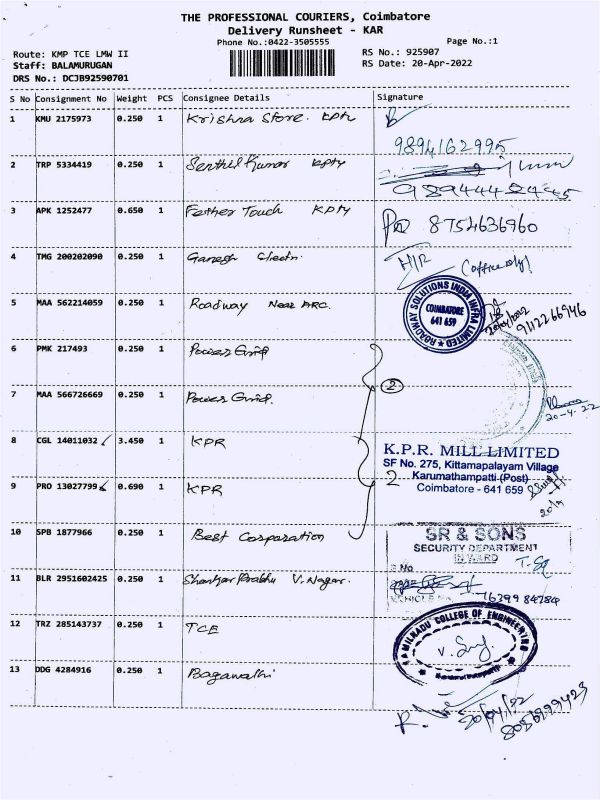 THE PROFESSIONAL COURIERS, Coimbatore
Delivery Runsheet - KAR
Phone No.:0422-3505555
Page No.:1
Route: KMP TCE LMW II
RS No.: 925907
Staff: BALAMURUGAN
RS Date: 20-Apr-2022
DRS No.: DCJB92590701
S No Consignment No Weight PCS Consignee Details Signature
1 KMU 2175973 0.250 1 Krishna Store. KPty
9894162995
2 TRP 5334419 0.250 1 Senthil Kumar KPty
3 APK 1252477 0.650 1 Father Touch KPty 8754636960
4 TMG 200202090 0.250 1 Ganesh Electri. H/R
5 MAA 562214059 0.250 1 Roadway Near ARC.
ROADWAY SOLUTIONS INDIA INFRA LIMITED
COIMBATORE
641 659
9112266946
6 PMK 217493 0.250 1 Power Grid
7 MAA 566726669 0.250 1 Power Grid. 2
20-4-22
8 CGL 14011032 3.450 1 KPR
K.P.R. MILL LIMITED
SF No. 275, Kittamapalayam Village
Karumathampatti (Post)
Coimbatore - 641 659
9 PRO 13027799 0.690 1 KPR 2
10 SPB 1877966 0.250 1 Best Corporation
SR & SONS
SECURITY DEPARTMENT
INWARD
S.No
11 BLR 2951602425 0.250 1 Shankar Prabhu V. Nagar.
VEHICLE No
12 TRZ 285143737 0.250 1 TCE
TAMILNADU COLLEGE OF ENGINEERING
13 DDG 4284916 0.250 1 Bagawathi
20/04/22
8056999423